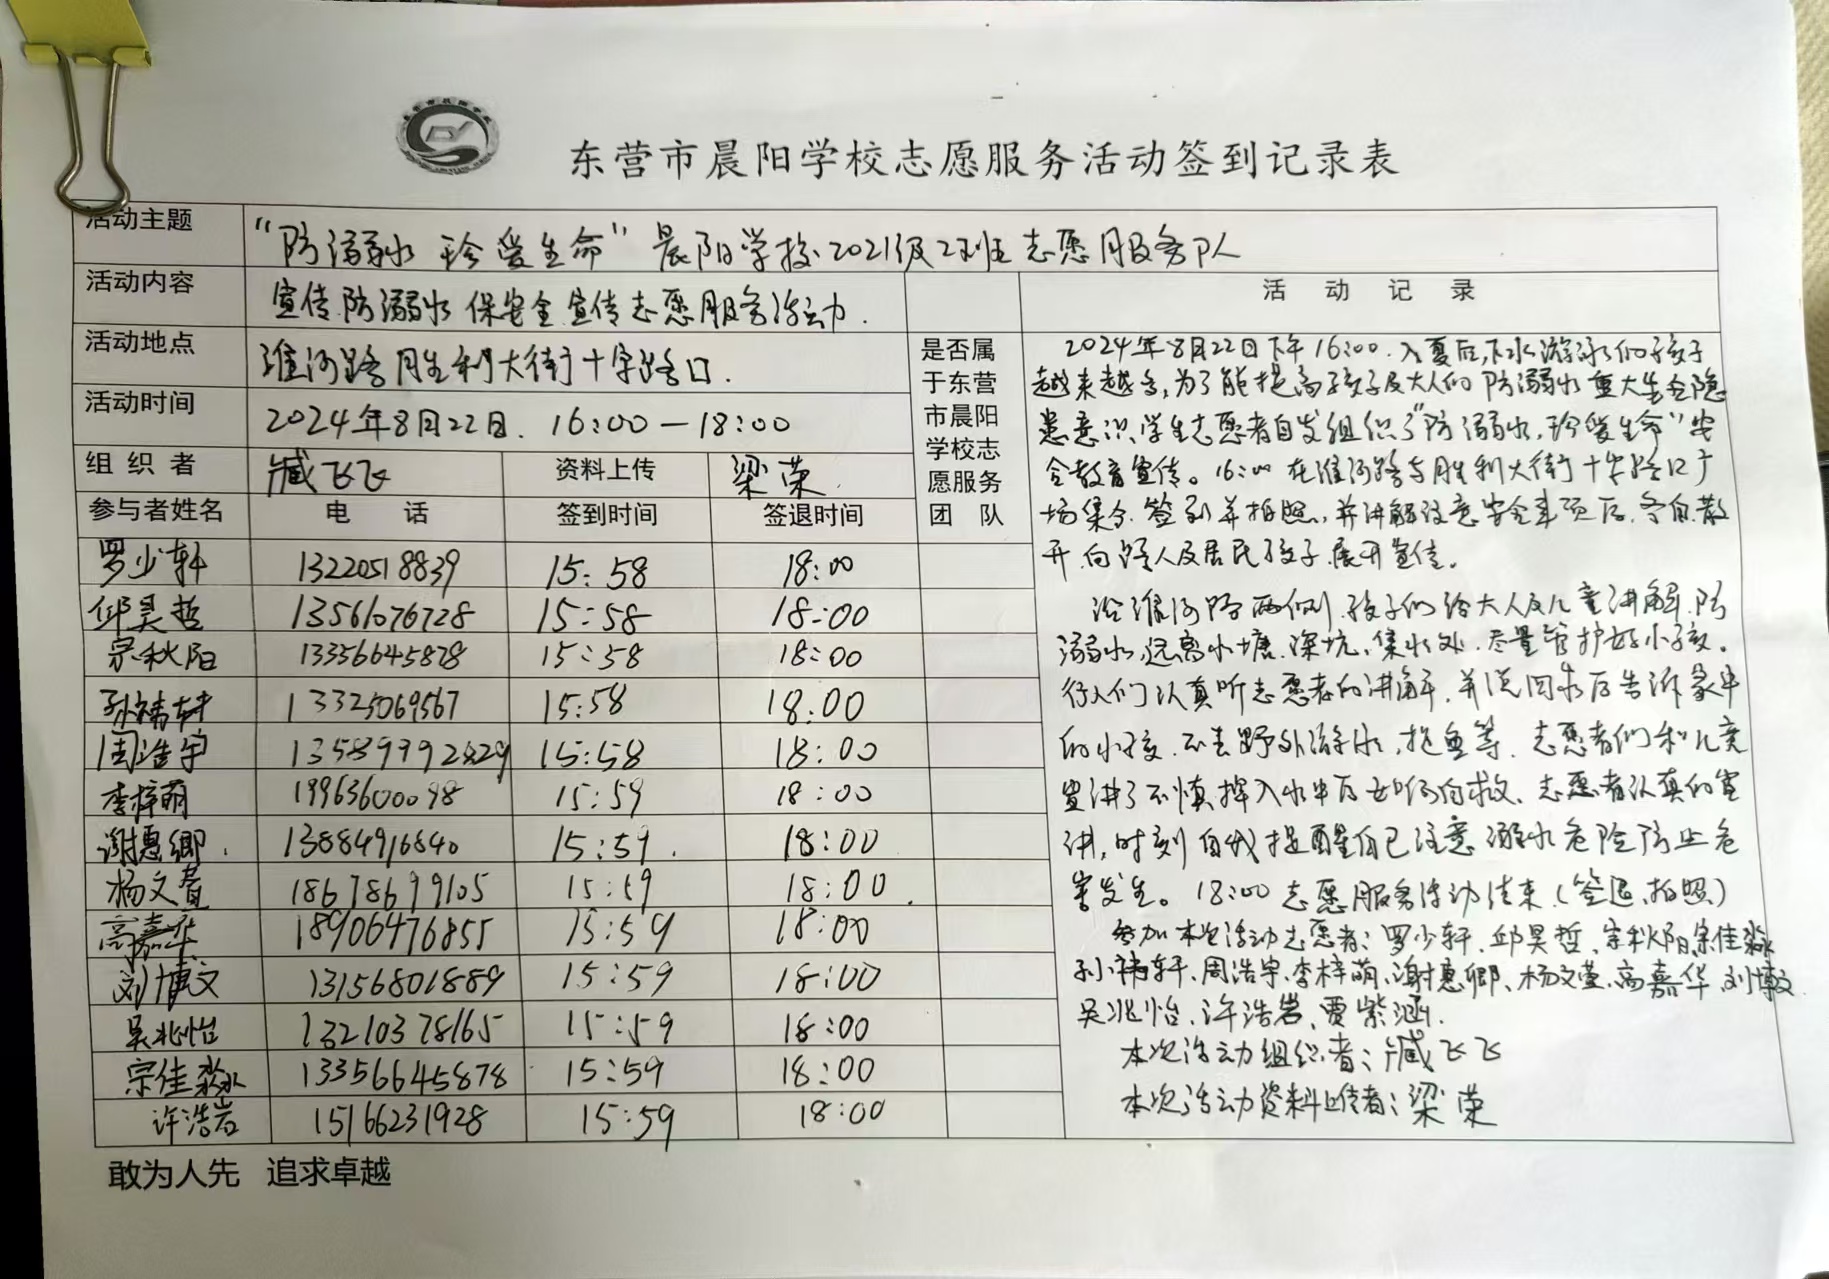 东营市晨阳学校志愿服务活动签到记录表
活动主题 "防溺水 珍爱生命"晨阳学校2021级2班志愿服务队
活动内容 宣传防溺水 保安全 宣传志愿服务活动.
活动地点 淮河路 胜利大街十字路口.
活动时间 2024年8月22日. 16:00—18:00
组织者 臧飞飞 资料上传 梁荣
参与者姓名 电话 签到时间 签退时间
罗少轩 13220518839 15:58 18:00
邱昊哲 13561076728 15:58 18:00
宗秋阳 13356645878 15:58 18:00
孙祎轩 13325069567 15:58 18:00
周浩宇 135899992829 15:58 18:00
李梓萌 19963600098 15:59 18:00
谢惠卿. 13884916840 15:59. 18:00
杨文萱 18678699105 15:59 18:00.
高嘉华 18906476855 15:59 18:00
刘博文 13156801889 15:59 18:00
吴兆怡 13210378165 15:59 18:00
宗佳淼 13356645878 15:59 18:00
许浩岩 15166231928 15:59 18:00
是否属
于东营
市晨阳
学校志
愿服务
团队
活动记录
2024年8月22日下午16:00.入夏后,下水游泳的孩子
越来越多,为了能提高孩子及大人们防溺水重大安全隐
患意识,学生志愿者自发组织了"防溺水,珍爱生命"安
全教育宣传。16:00在淮河路与胜利大街十字路口广
场集合.签到并拍照,并讲解注意安全事项后.各自散
开.向路人及居民孩子.展开宣传。
沿淮河路两侧.孩子们给大人及儿童讲解.防
溺水,远离水塘.深坑,集水处.尽量管护好小孩。
行人们认真听志愿者的讲解,并说回家后告诉家中
的小孩.不去野外游泳,捉鱼等.志愿者们和儿童
宣讲了不慎掉入水中后如何自救.志愿者认真的宣
讲,时刻自我提醒自己注意溺水危险防止危
害发生。18:00志愿服务活动结束(签退,拍照)
参加本次活动志愿者:罗少轩、邱昊哲、宗秋阳、宗佳淼
孙祎轩、周浩宇、李梓萌、谢惠卿、杨文萱、高嘉华、刘博文
吴兆怡、许浩岩、贾紫涵.
本次活动组织者:臧飞飞
本次活动资料上传者:梁荣
敢为人先 追求卓越